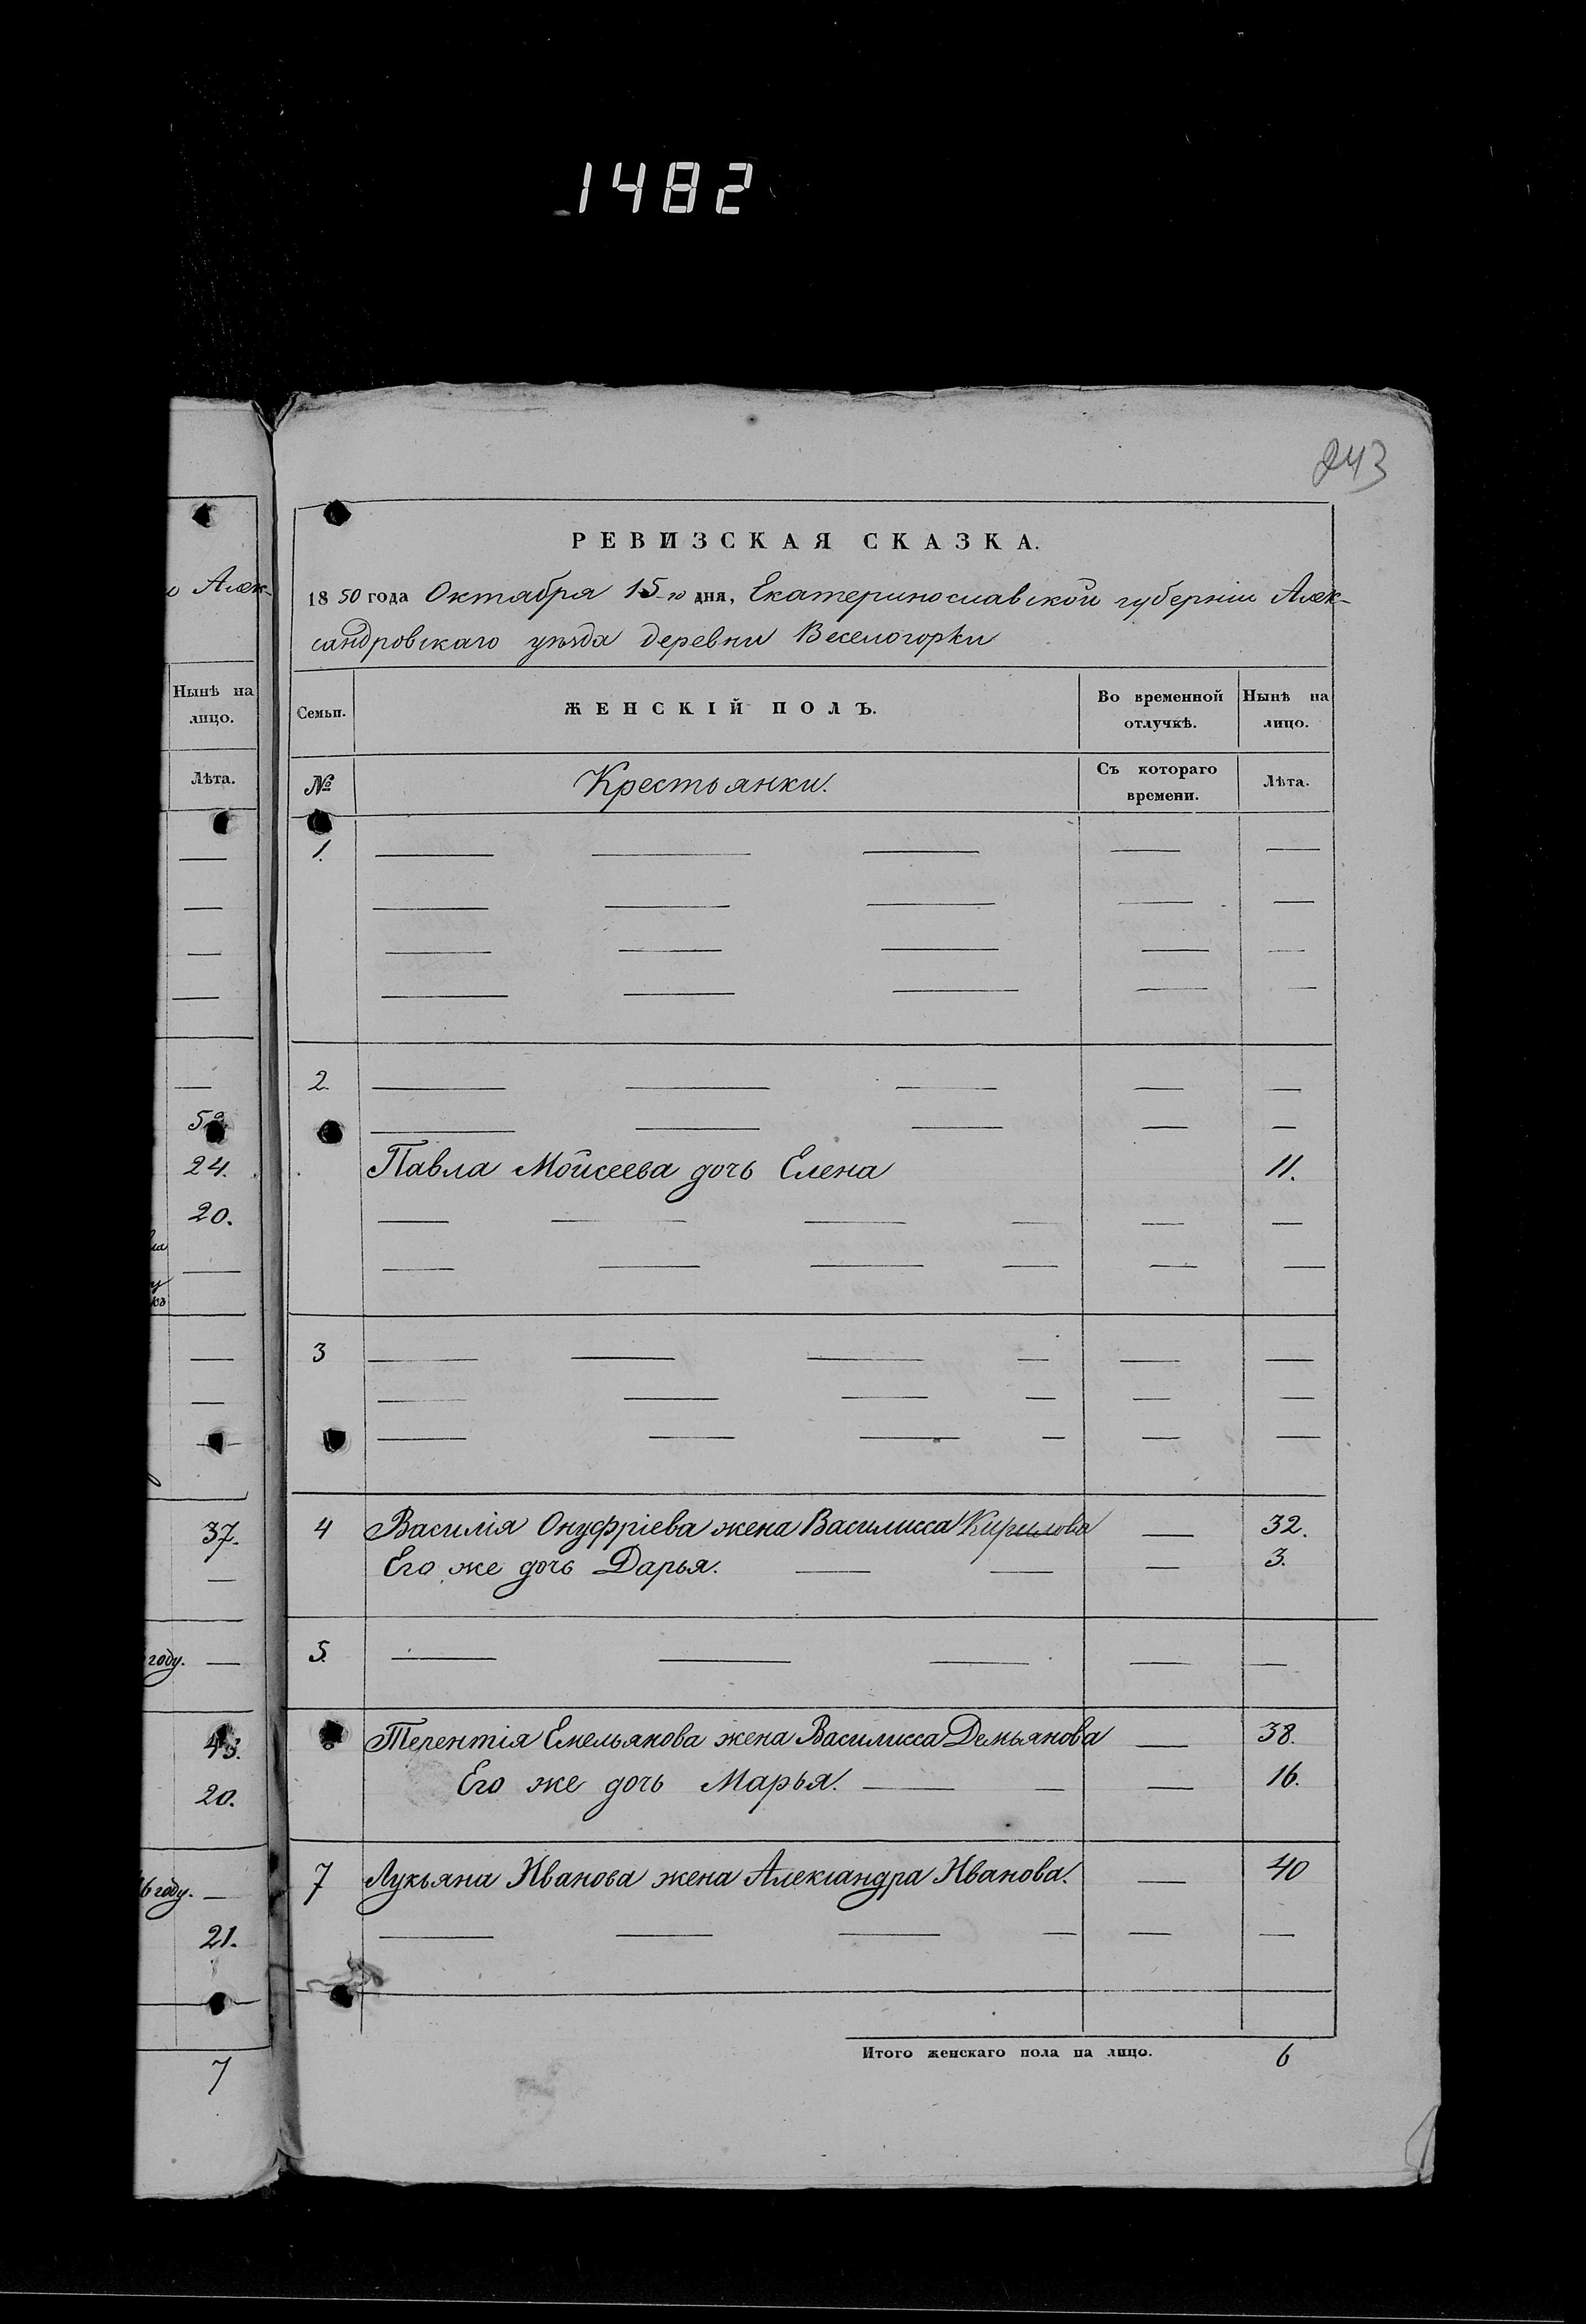 1482
243
о Алек-
Нынѣ на
лицо.
Лѣта.
52
24.
20.
37.
году.
43.
20.
6 году.
21.
7
РЕВИЗСКАЯ СКАЗКА.
1850 года Октября 15-го дня, Екатеринославской губерніи Алек-
сандровскаго уѣзда деревни Веселогорки
Семьи. ЖЕНСКІЙ ПОЛЪ. Во временной отлучкѣ. Нынѣ на лицо.
№ Крестьянки. Съ котораго времени. Лѣта.
1. — — — — —
— — — — —
— — — — —
— — — — —
2. — — — — —
— — — — —
Павла Мойсеева дочь Елена 11.
— — — — — —
— — — — — —
3 — — — — — —
— — — — — —
— — — — — —
4 Василія Онуфріева жена Василисса Кирилова — 32.
Его же дочь Дарья. — — — 3.
5. — — — — —
Терентія Емельянова жена Василисса Демьянова — 38.
Его же дочь Марья. — — — 16.
7 Лукьяна Иванова жена Александра Иванова. — 40
— — — — — —
Итого женскаго пола на лицо. 6